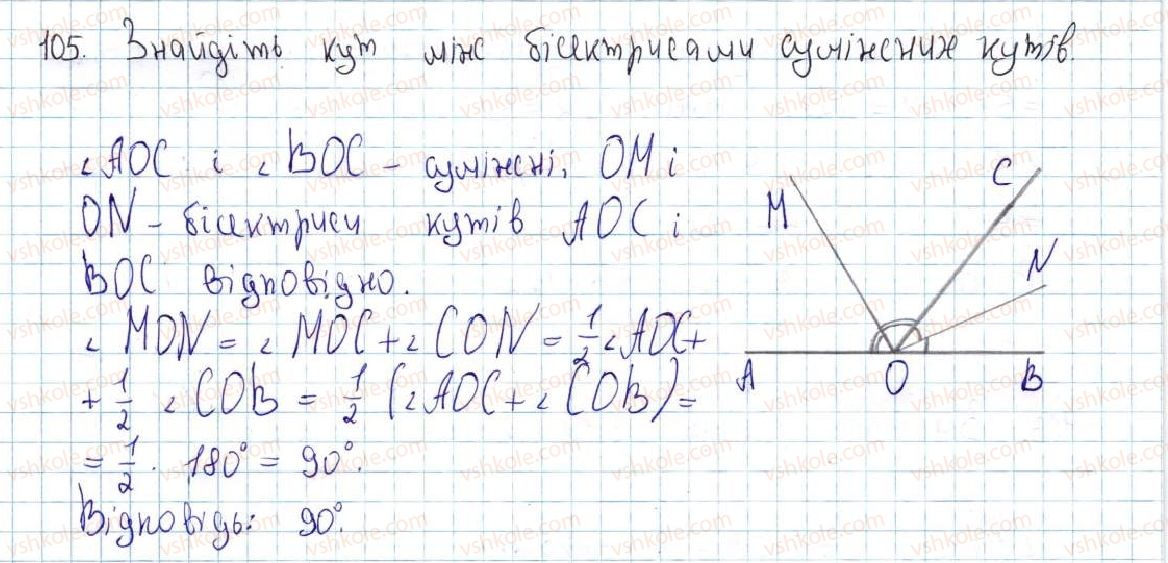 105. Знайдіть кут між бісектрисами суміжних кутів.
∠AOC і ∠BOC – суміжні, OM і
ON – бісектриси кутів AOC і
BOC відповідно.
∠MON = ∠MOC + ∠CON = 1/2 ∠AOC +
+ 1/2 ∠COB = 1/2 (∠AOC + ∠COB) =
= 1/2 · 180° = 90°.
Відповідь: 90°.
M
C
N
A
O
B
vshkole.com